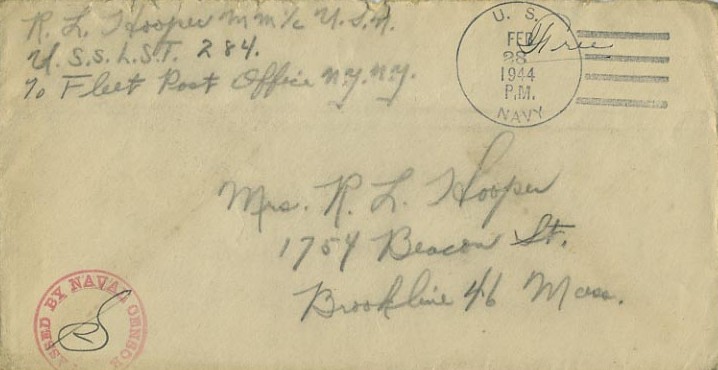 R. L. Hooper M M 1/c U.S.N.
U.S.S. L.S.T. 284.
% Fleet Post Office N.Y. N.Y.
U. S.
FEB
28
1944
P.M.
NAVY
Free
Mrs. R. L. Hooper
1754 Beacon St.
Brookline 46 Mass.
PASSED BY NAVAL CENSOR